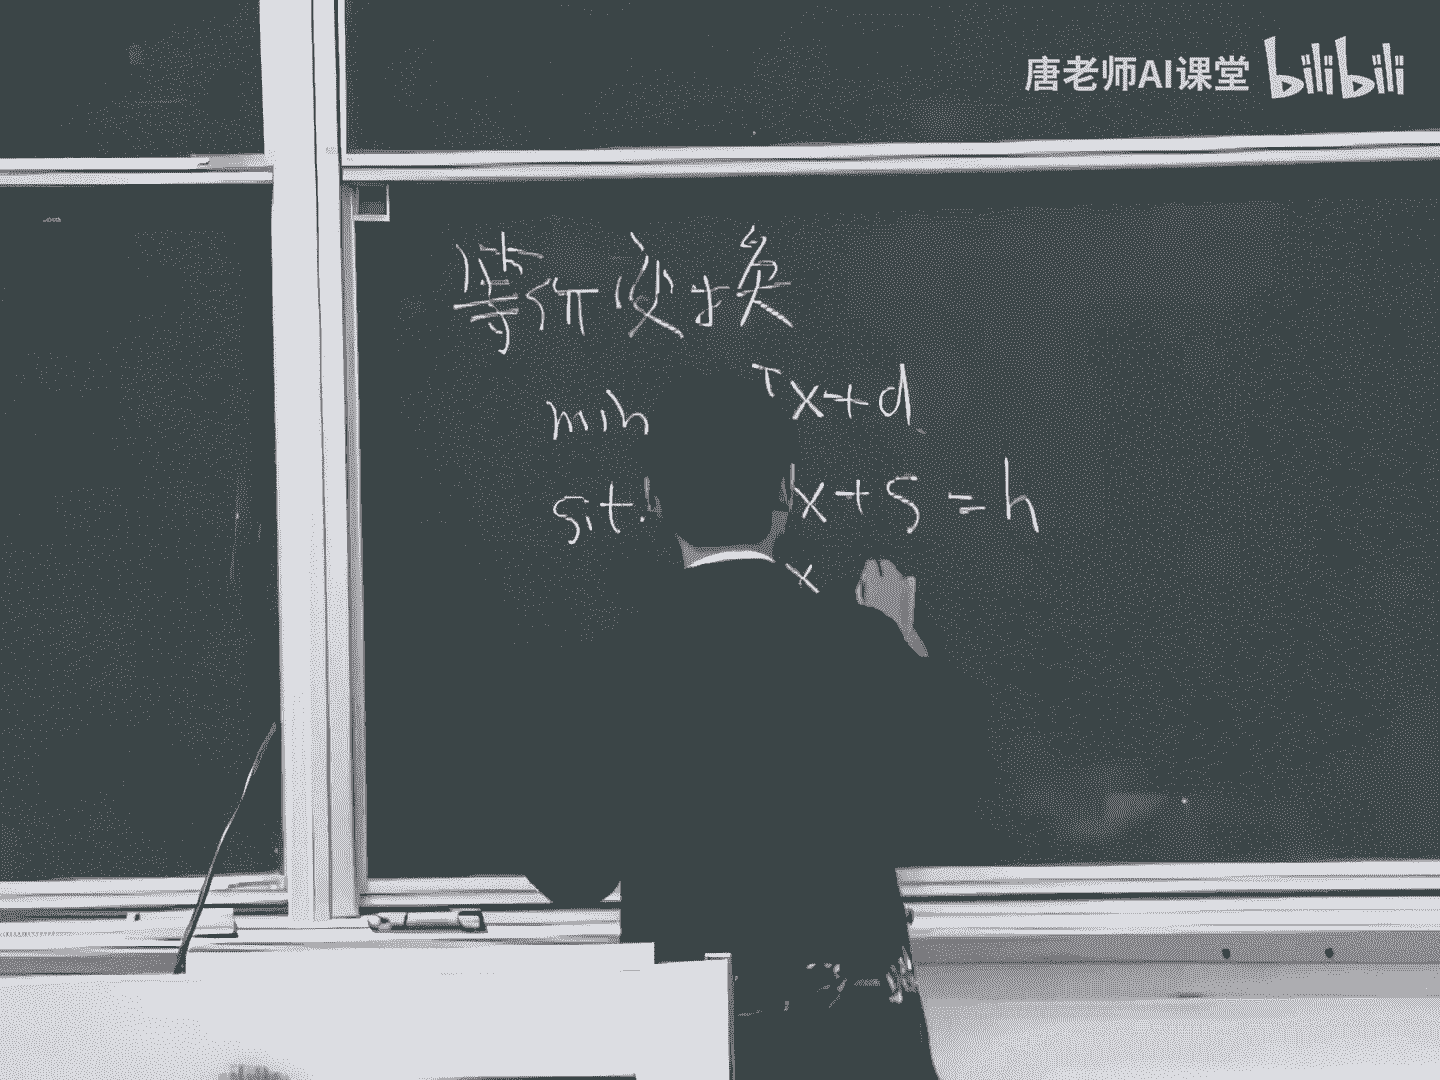 唐老师AI课堂 bilibili
等价变换
min Tx+d
s.t. x+s=h
x